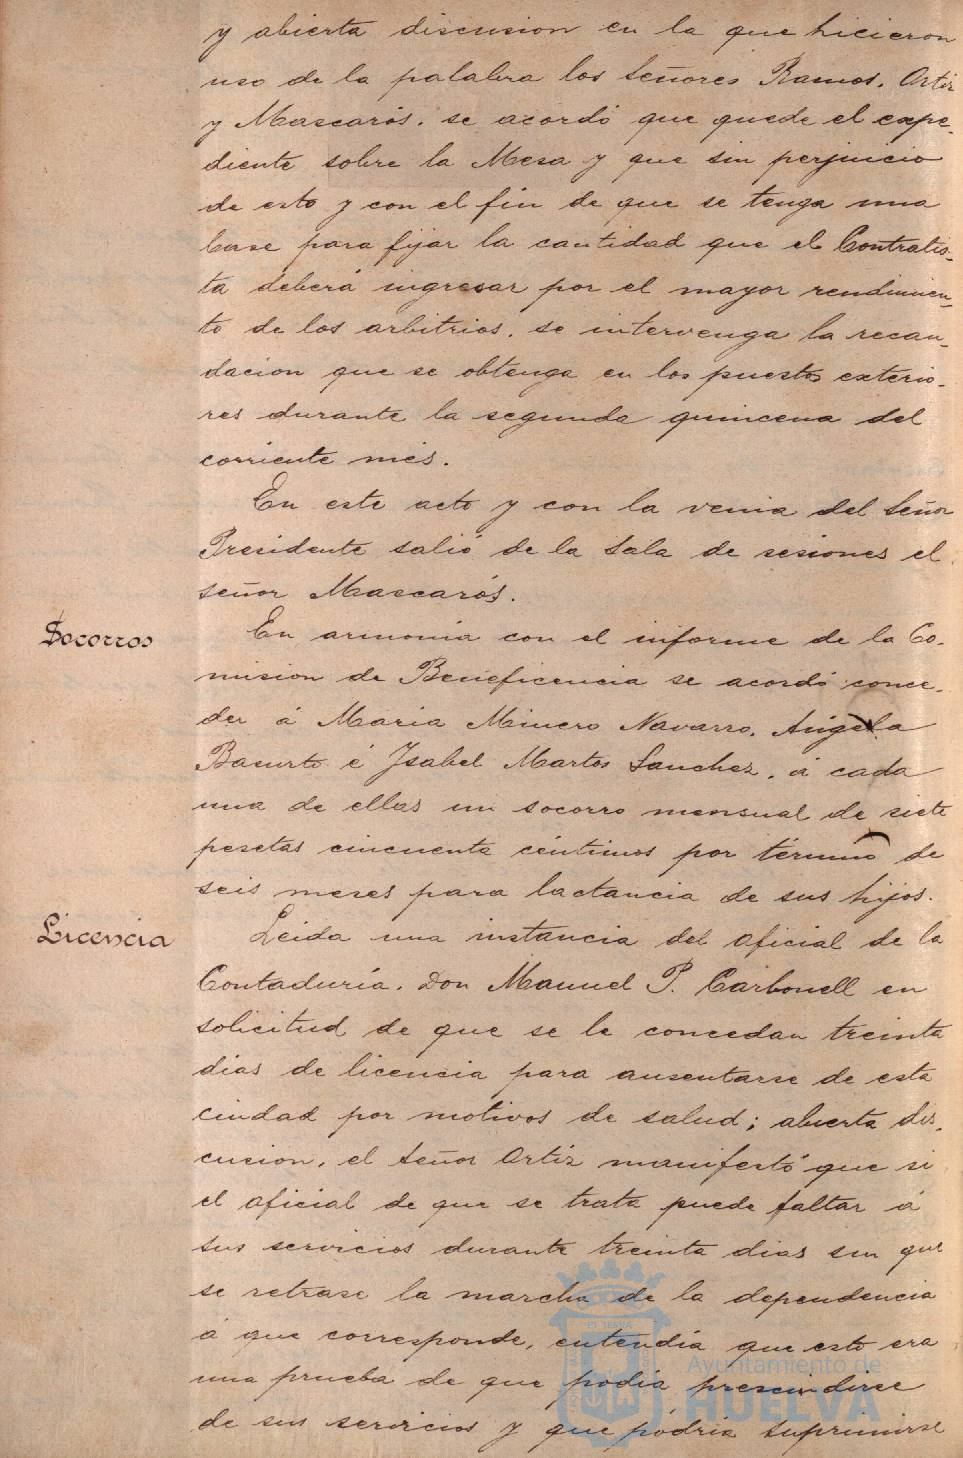 y abierta discusion en la que hicieron
uso de la palabra los señores Ramos, Ortiz
y Mascarós, se acordó que quede el expe-
diente sobre la Mesa y que sin perjuicio
de esto y con el fin de que se tenga una
base para fijar la cantidad que el Contratis-
ta deberá ingresar por el mayor rendimien-
to de los arbitrios, se intervenga la recau-
dacion que se obtenga en los puestos exterio-
res durante la segunda quincena del
corriente mes.
En este acto y con la venia del Señor
Presidente salió de la Sala de sesiones el
señor Mascarós.
Socorros
En armonia con el informe de la Co-
mision de Beneficencia se acordó conce-
der á Maria Minero Navarro, Angela
Basurto é Ysabel Martos Sanchez, á cada
una de ellas un socorro mensual de siete
pesetas cincuenta céntimos por término de
seis meses para lactancia de sus hijos.
Licencia
Leida una instancia del oficial de la
Contaduría, Don Manuel P. Carbonell en
solicitud de que se le concedan treinta
dias de licencia para ausentarse de esta
ciudad por motivos de salud; abierta dis-
cusion, el Señor Ortiz manifestó que si
el oficial de que se trata puede faltar á
sus servicios durante treinta dias sin que
se retrase la marcha de la dependencia
á que corresponde, entendia que esto era
una prueba de que podia prescindirse
de sus servicios y que podria suprimirse
Ayuntamiento de
HUELVA